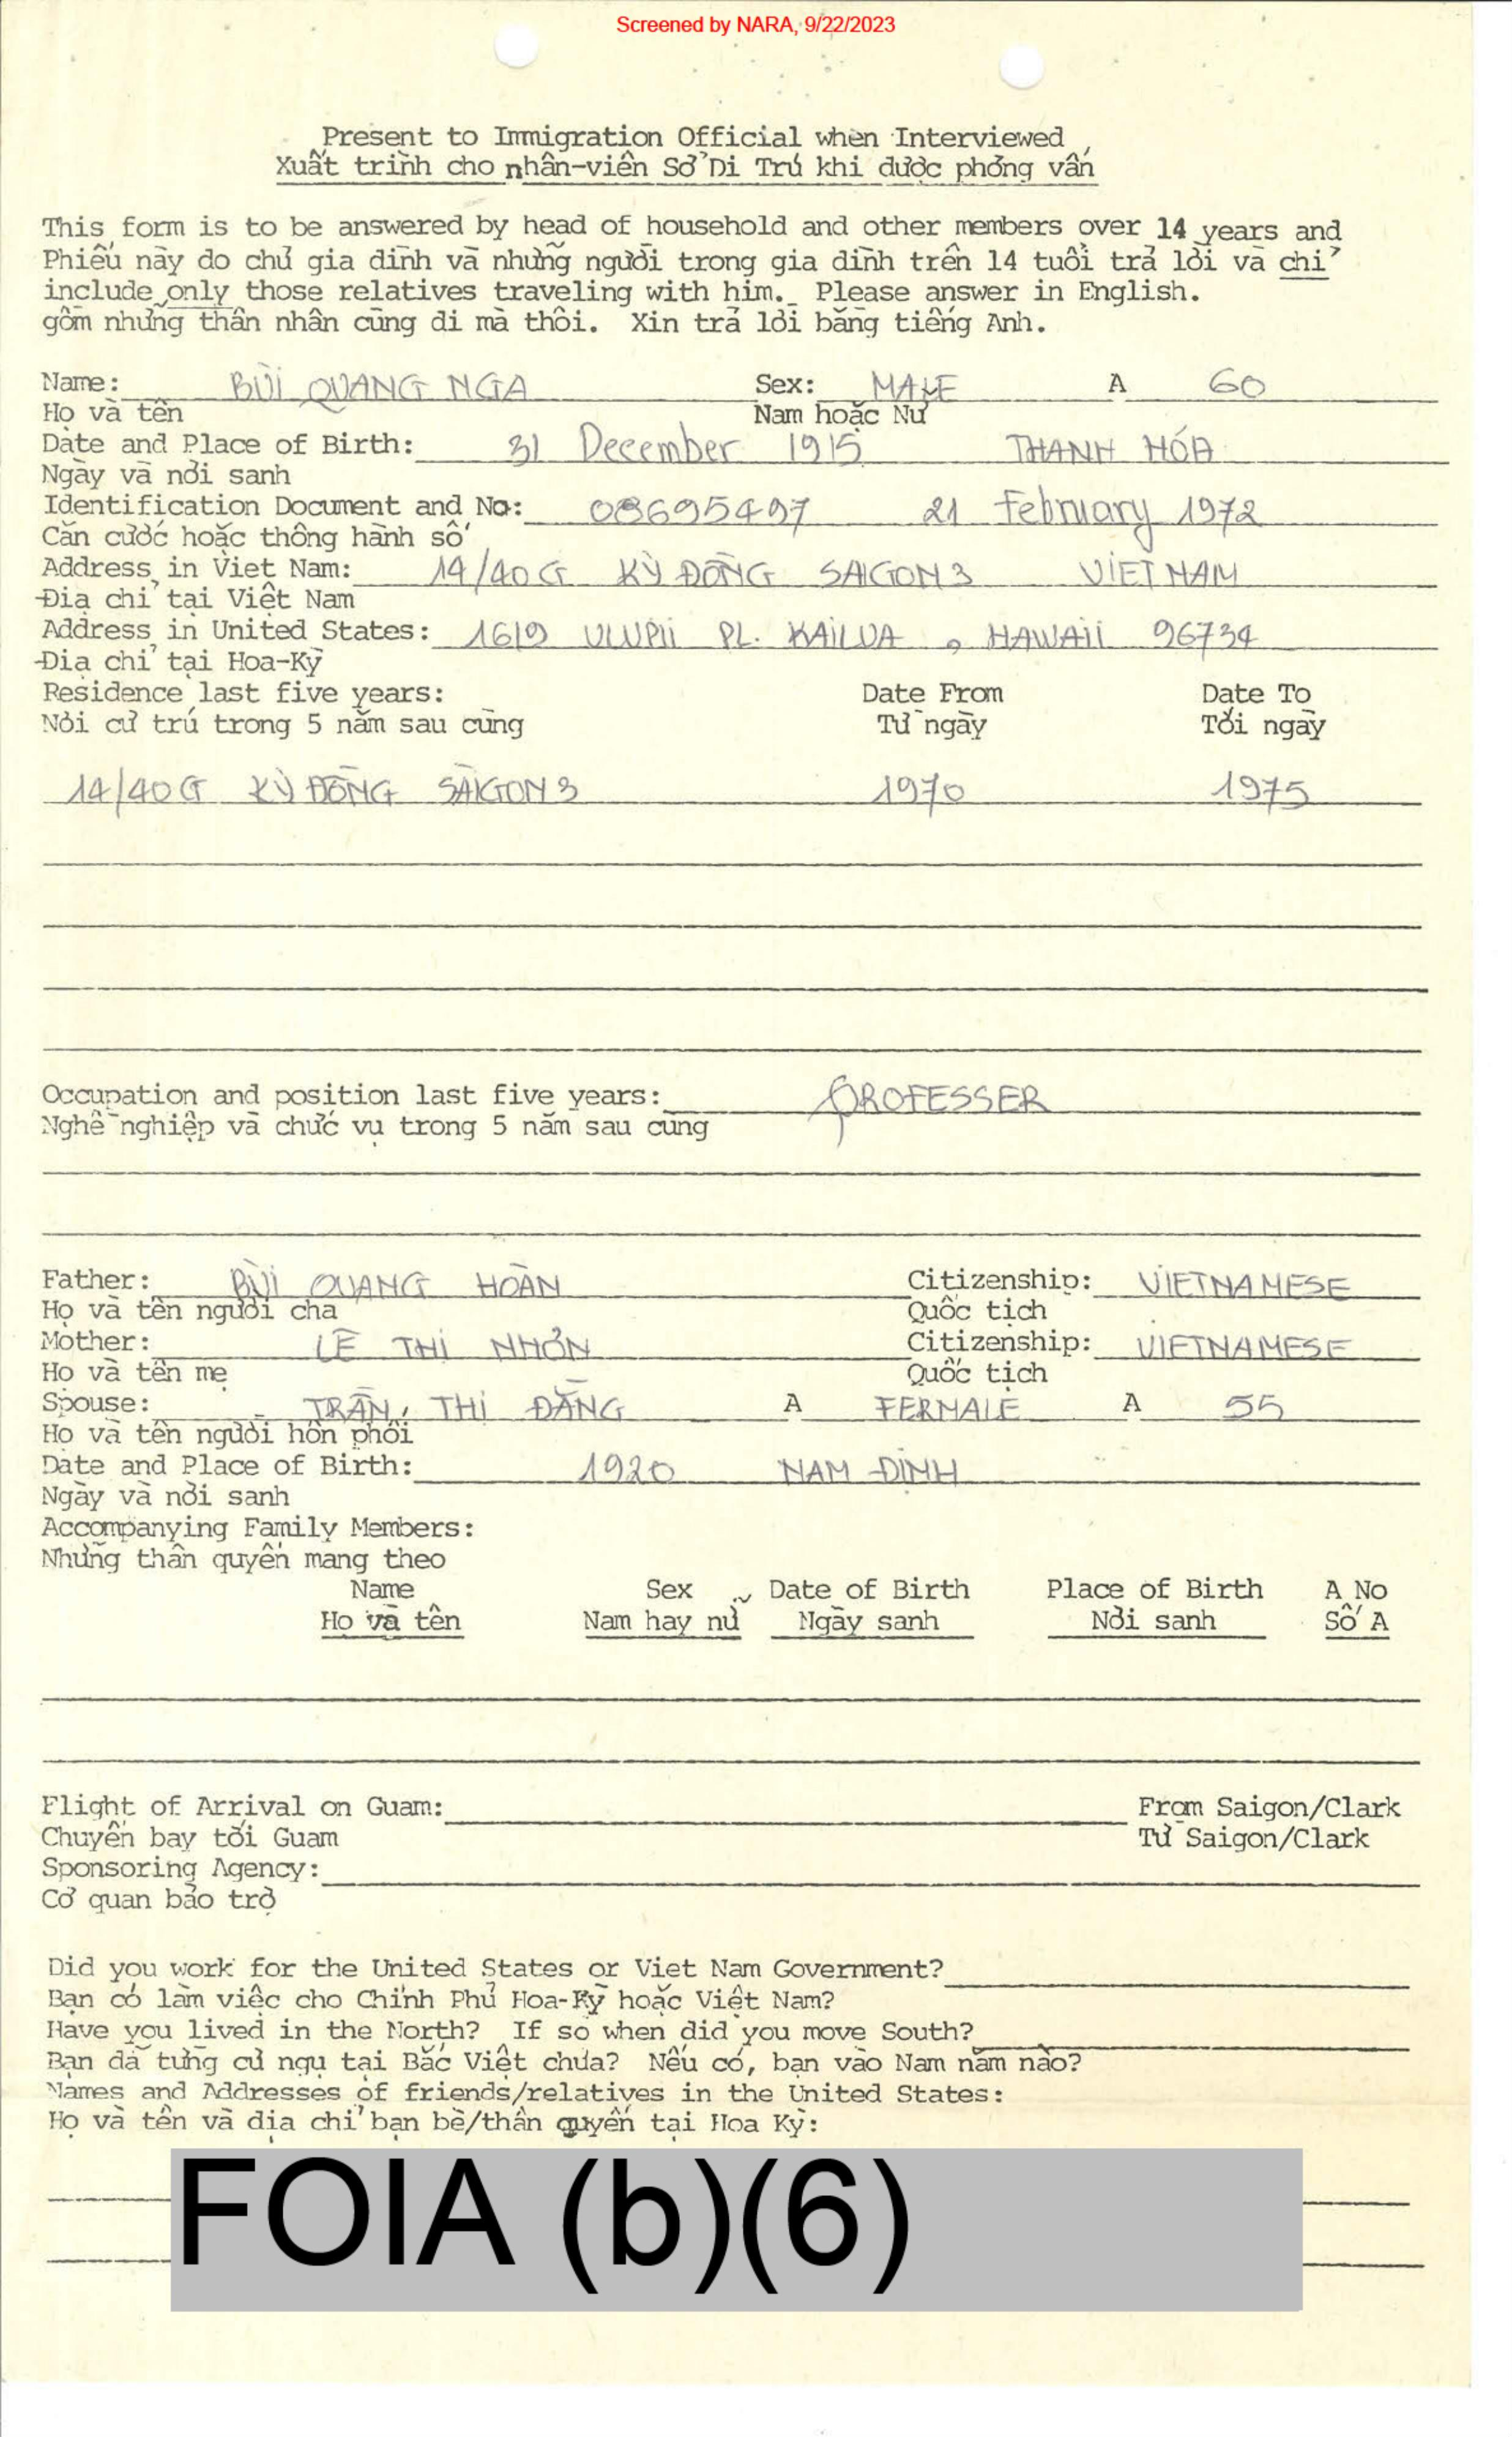 Screened by NARA, 9/22/2023
Present to Immigration Official when Interviewed
Xuất trình cho nhân-viên Sở Di Trú khi được phỏng vấn
This form is to be answered by head of household and other members over 14 years and
Phiếu này do chủ gia đình và những người trong gia đình trên 14 tuổi trả lời và chỉ
include only those relatives traveling with him. Please answer in English.
gồm những thân nhân cùng đi mà thôi. Xin trả lời bằng tiếng Anh.
Name: BÙI QUANG NGA Sex: MALE A 60
Họ và tên Nam hoặc Nữ
Date and Place of Birth: 31 December 1915 THANH HÓA
Ngày và nơi sanh
Identification Document and No: 08695497 21 February 1972
Căn cước hoặc thông hành số
Address in Viet Nam: 14/40G KỲ ĐỒNG SAIGON 3 VIETNAM
Địa chỉ tại Việt Nam
Address in United States: 1619 ULUPII PL. KAILUA, HAWAII 96734
Địa chỉ tại Hoa-Kỳ
Residence last five years: Date From Date To
Nơi cư trú trong 5 năm sau cùng Từ ngày Tới ngày
14/40G KỲ ĐỒNG SÀIGON 3 1970 1975
Occupation and position last five years: PROFESSER
Nghề nghiệp và chức vụ trong 5 năm sau cùng
Father: BÙI QUANG HOÀN Citizenship: VIETNAMESE
Họ và tên người cha Quốc tịch
Mother: LÊ THỊ NHƠN Citizenship: VIETNAMESE
Họ và tên mẹ Quốc tịch
Spouse: TRẦN, THỊ ĐẰNG A FERMALE A 55
Họ và tên người hôn phối
Date and Place of Birth: 1920 NAM ĐỊNH
Ngày và nơi sanh
Accompanying Family Members:
Những thân quyến mang theo
Name Sex Date of Birth Place of Birth A No
Họ và tên Nam hay nữ Ngày sanh Nơi sanh Số A
Flight of Arrival on Guam: From Saigon/Clark
Chuyến bay tới Guam Từ Saigon/Clark
Sponsoring Agency:
Cơ quan bảo trợ
Did you work for the United States or Viet Nam Government?
Bạn có làm việc cho Chính Phủ Hoa-Kỳ hoặc Việt Nam?
Have you lived in the North? If so when did you move South?
Bạn đã từng cư ngụ tại Bắc Việt chưa? Nếu có, bạn vào Nam năm nào?
Names and Addresses of friends/relatives in the United States:
Họ và tên và địa chỉ bạn bè/thân quyến tại Hoa Kỳ:
FOIA (b)(6)